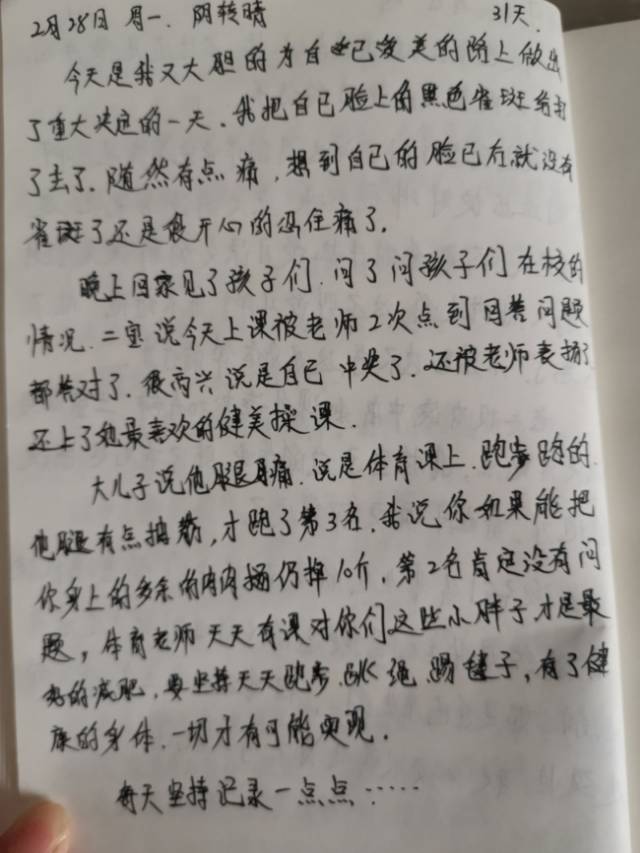 2月28日 周一. 阴转晴 31天.
今天是我又大胆的为自己爱美的路上做出
了重大决定的一天. 我把自己脸上的黑色雀斑给打
了去了. 随然有点痛, 想到自己的脸已后就没有
雀斑了还是很开心的忍住痛了.
晚上回家见了孩子们. 问了问孩子们在校的
情况. 二宝说今天上课被老师2次点到回答问题
都答对了. 很高兴说是自己中奖了. 还被老师表扬了
还上了她最喜欢的健美操课.
大儿子说他腿痛. 说是体育课上. 跑步跑的.
他腿有点抽筋, 才跑了第3名. 我说你如果能把
你身上的多余的肉肉扔掉10斤. 第2名肯定没有问
题, 体育老师天天有课对你们这些小胖子才是最
好的减肥. 要坚持天天跑步. 跳绳. 踢毽子, 有了健
康的身体. 一切才有可能实现.
每天坚持记录一点点……